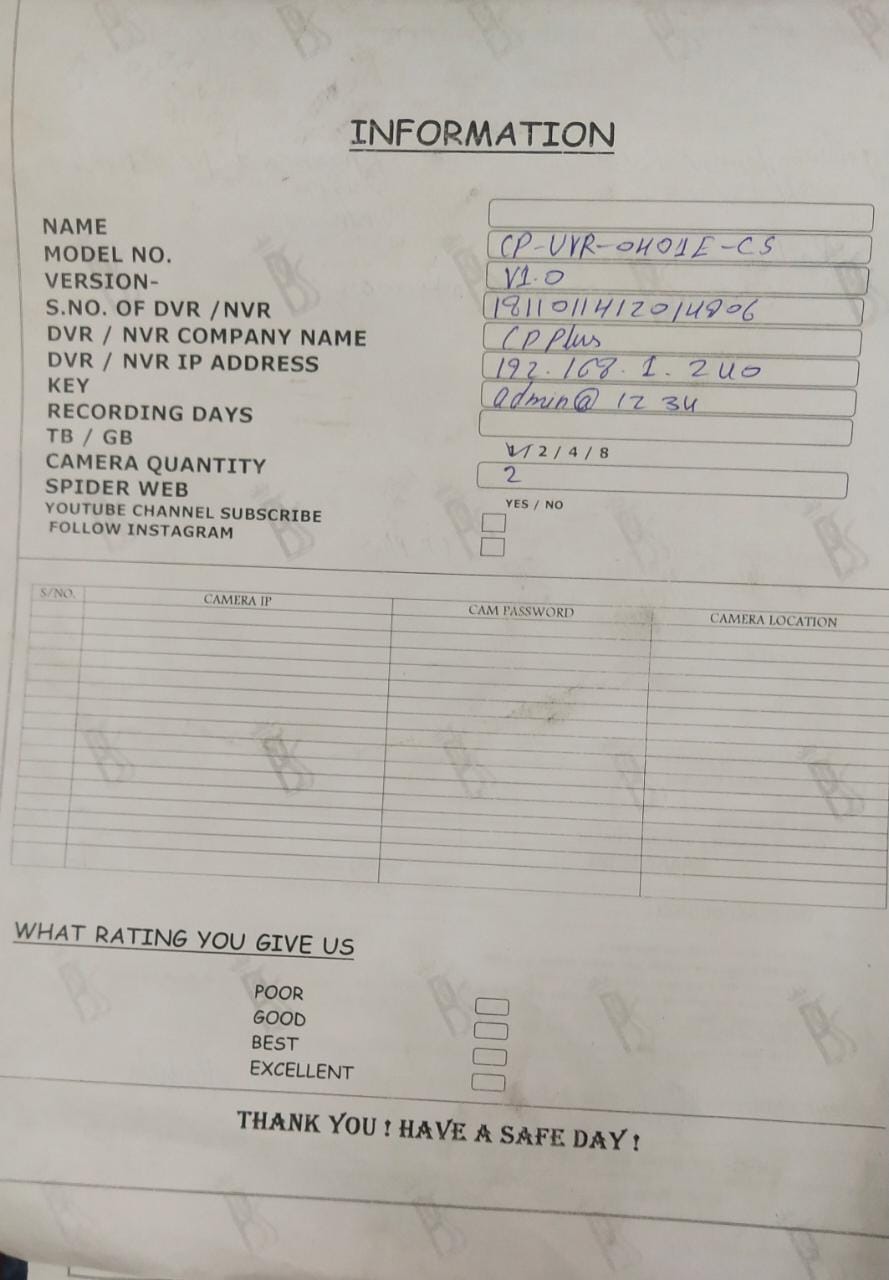 INFORMATION
NAME
MODEL NO. CP-UVR-0401E-CS
VERSION- V1.0
S.NO. OF DVR /NVR 1811011412014806
DVR / NVR COMPANY NAME CP Plus
DVR / NVR IP ADDRESS 192.168.1.240
KEY admin@1234
RECORDING DAYS
TB / GB 1/ 2 / 4 / 8
CAMERA QUANTITY 2
SPIDER WEB YES / NO
YOUTUBE CHANNEL SUBSCRIBE
FOLLOW INSTAGRAM
S/NO. CAMERA IP CAM PASSWORD CAMERA LOCATION
WHAT RATING YOU GIVE US
POOR
GOOD
BEST
EXCELLENT
THANK YOU ! HAVE A SAFE DAY !